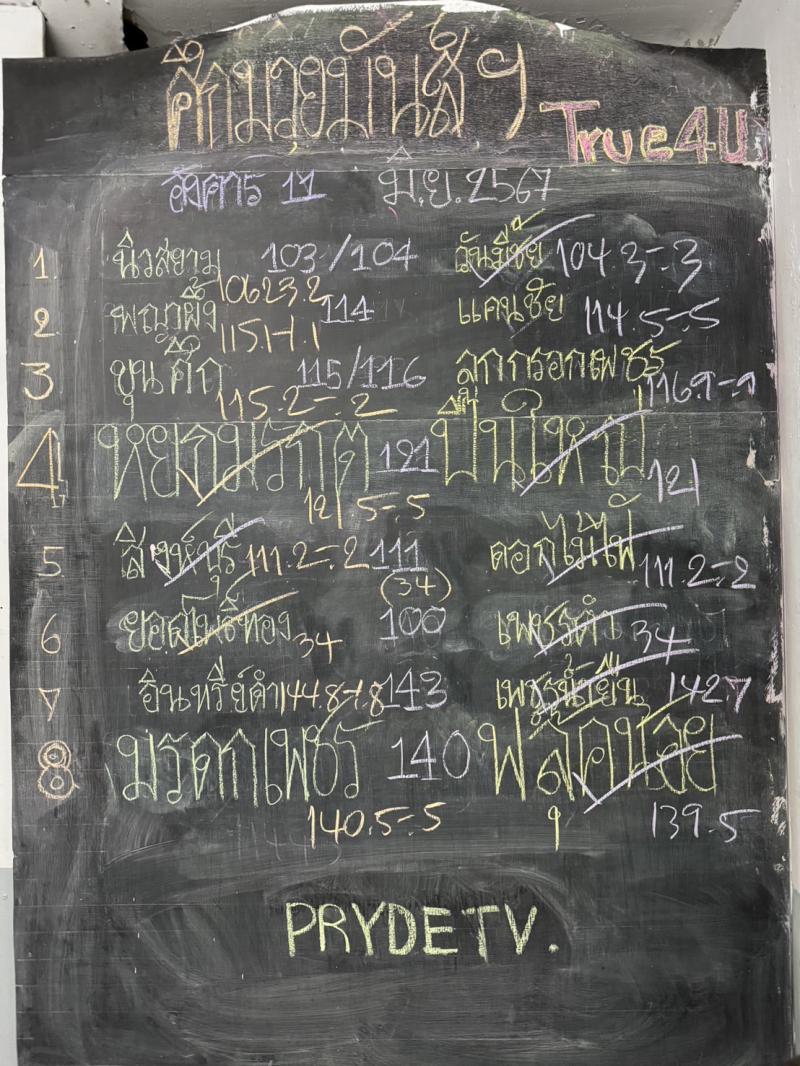 ศึกมวยมันส์ฯ
True4U
อังคาร 11 มิ.ย. 2567
1. นิวสยาม 103/104 วันมีชัย 104.3-.3
106.2 3.2
2 พญาผึ้ง 114 แคนชัย 114.5-.5
115.1-1.1
3 ขุนศึก 115/116 ลูกกรอกเพชร 116.9-.9
115.2-.2
4 หยกมรกต 121 ปืนใหญ่ 121
121.5-.5
5 สิงห์บุรี 111.2-.2 111 ดอกไม้ไฟ 111.2-.2
(34)
6 ยอดโพธิ์ทอง 34 100 เพชรดำ 34
7 อินทรีย์ดำ 144.8-1.8 143 เพชรน้ำยืน 142.7
8 มรดกเพชร 140 พลอยน้อย
140.5-.5 139.5
PRYDETV.